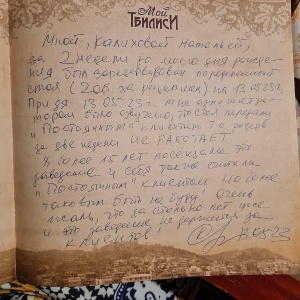 Мой
ТБИЛИСИ
Мной, Калиховой Натальей,
за 2 недели до моего дня рожде-
ния был зарезервирован
стол (2 об за рецепшен) на 13.05.23г.
Придя 13.05.23г. мне администра-
тором было озвучено, что стол передали
"Постоянным" клиентам т.е. резерв
за две недели НЕ РАБОТАЕТ
Я более 15 лет посещала это
заведение и себя также считала
"Постоянным" клиентом Но более
таковым быть не буду. Очень
жаль, что за столько лет уже
и это заведение не держится за
клиентов!
13.05.23